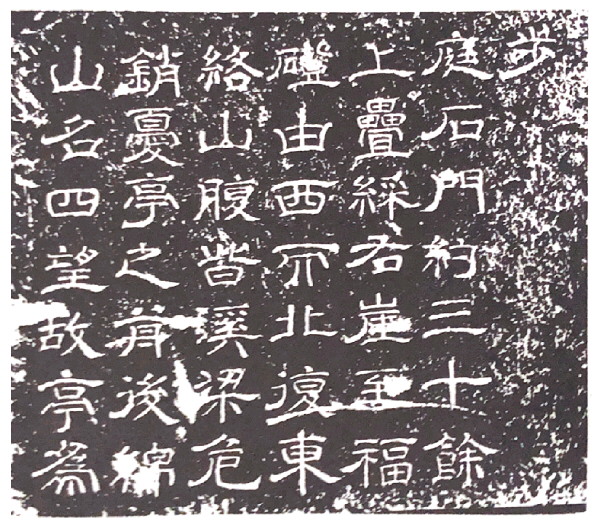 山名四望故亭爲
銷憂亭之前後綿
絡山腹皆溪梁危
磴由西而北復東
上疊綵右崖至福
庭石門約三十餘
步